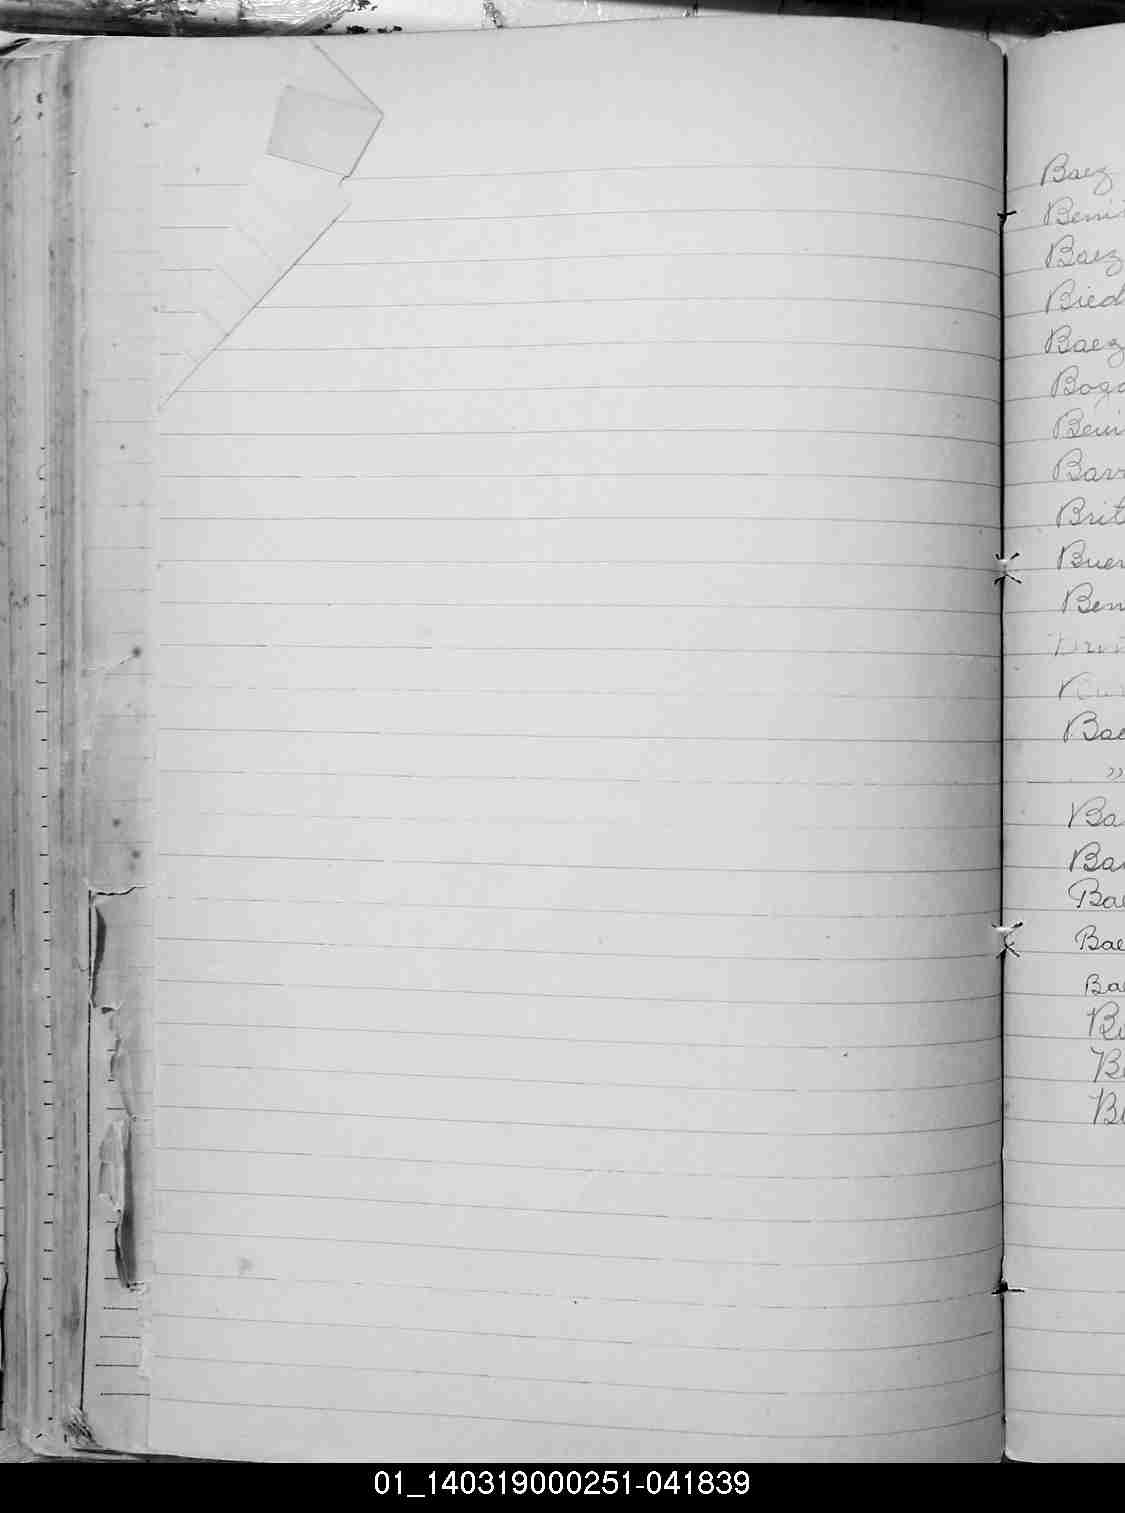 Baez
Beni
Baez
Bied
Baez
Boga
Beni
Barr
Brit
Buen
Ben
Bae
"
Ba
Ba
Bae
Bae
Ba
B
B
B
01_140319000251-041839